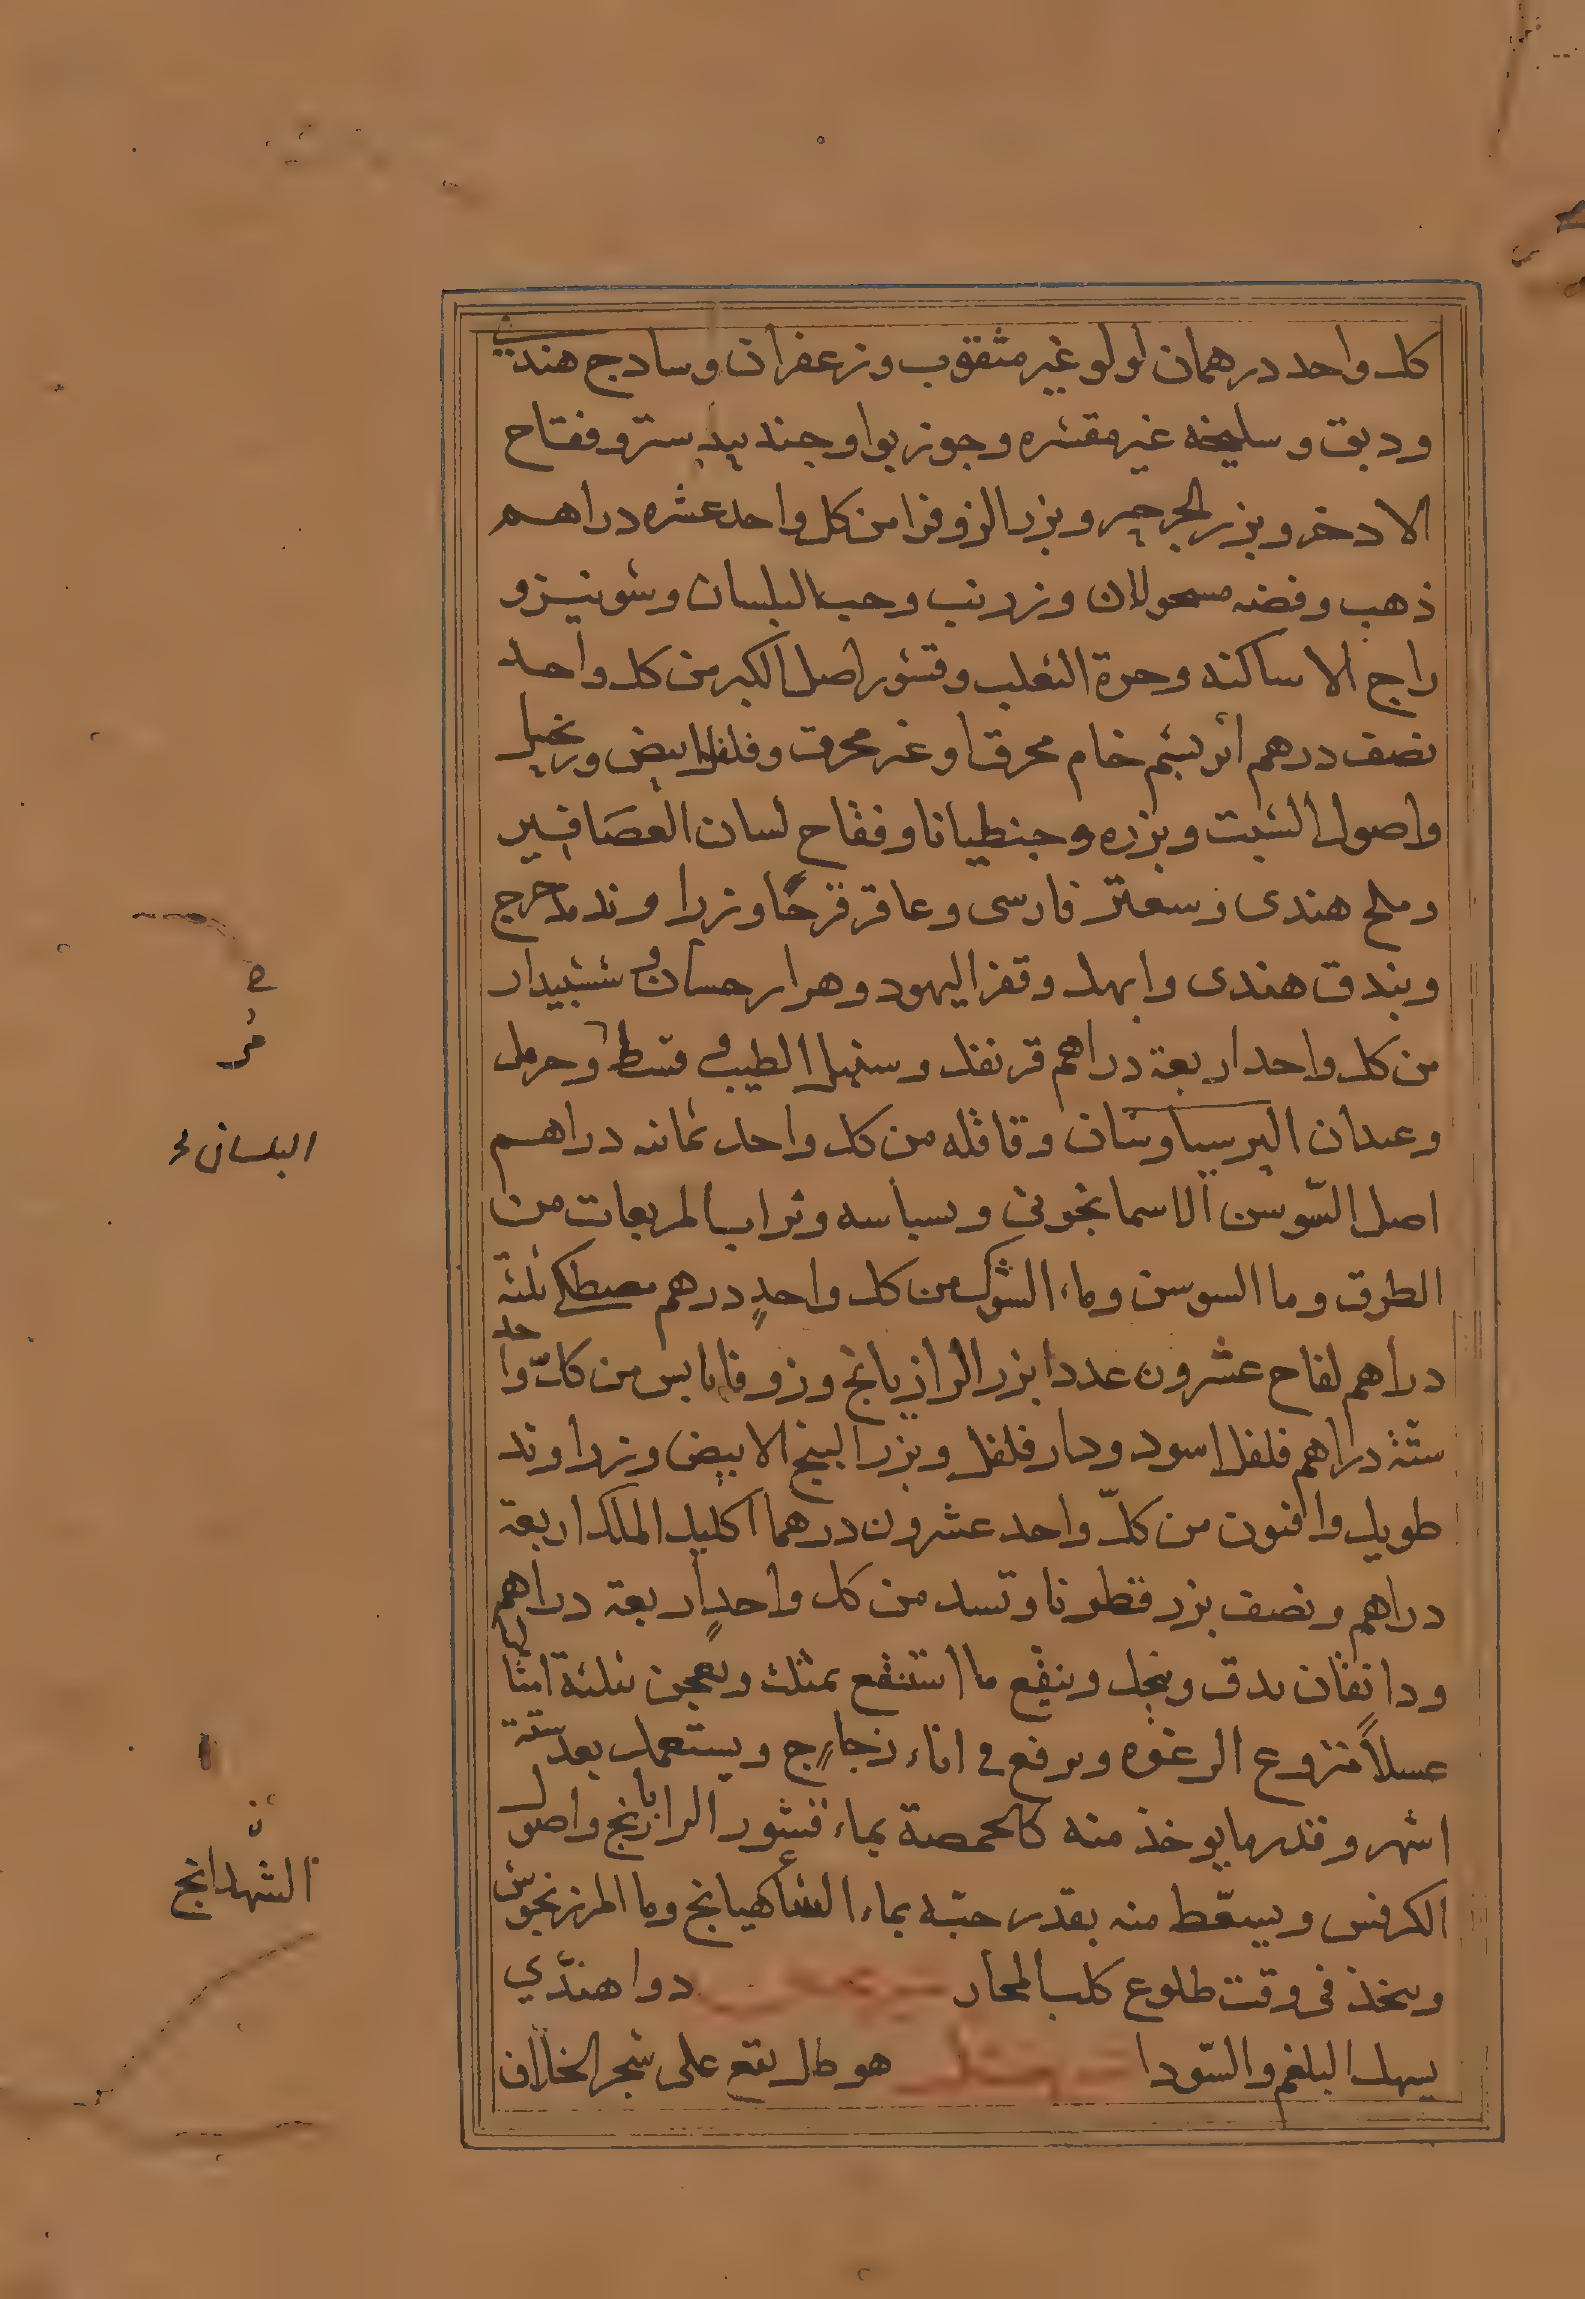 كل واحد درهمان لولو غير مثقوب وزعفران وسادج هندي
ودبق وسليخه غير مقشره وجوزبوا وجندبيدستر وفقاح
الادخر وبزر الجرجير وبزر الزوفرا من كل واحد عشره دراهم
ذهب وفضه مسحولان وزرنب وحب البلسان وشونيز و
راج الاساكنه وحرة الثعلب وقشور اصل الكبر من كل واحد
نصف درهم ابريشم خام محرق او غير محرق وفلفل ابيض وزنجبيل
واصول الشبت وبزره وجنطيانا وفقاح لسان العصافير
وملح هندى وسعتر فارسى وعاقرقرحا وزراوند مدحرج
وبندق هندى وابهل وقفر اليهود وهزارحسان و ششبيدار
من كل واحد اربعة دراهم قرنفل وسنبل الطيب و قسط وحرمل
وعيدان البرسياوشان وقاقله من كل واحد ثمانيه دراهم
اصل السّوسن الاسمانجونى وبسباسه وتراب المربعات من
الطرق وما السوسن وماء الشوك من كل واحدٍ درهم مصطكى ثلثة
دراهم لفاح عشرون عددا بزر الرازيانج وزوفا يابس من كلّ واحد
ستّة دراهم فلفل اسود ودارفلفل وبزر البنج الابيض وزراوند
طويل وافيون من كلّ واحد عشرون درهما اكليل الملك اربعة
دراهم ونصف بزر قطونا وتسد من كل واحدٍ اربعة دراهم
ودانقان يدق وينخل وينقع ما استنقع بمثلث ويعجن بثلثة امثاله
عسلاً منزوع الرغوه ويرفع فى اناء زجاج ويستعمل بعد ستة
اشهر وقدر ما يوخذ منه كالحمصة بماء قشور الرازيانج واصول
الكرفس ويسعّط منه بقدر حبّه بماء الشاهيانج وما المرزنجوش
ويتخذ فى وقت طلوع كلب الجبار
دوا هندّي
يسهل البلغم والسّودا
هو طل يقع على شجر الخلاف
البلسان
الشهدانج